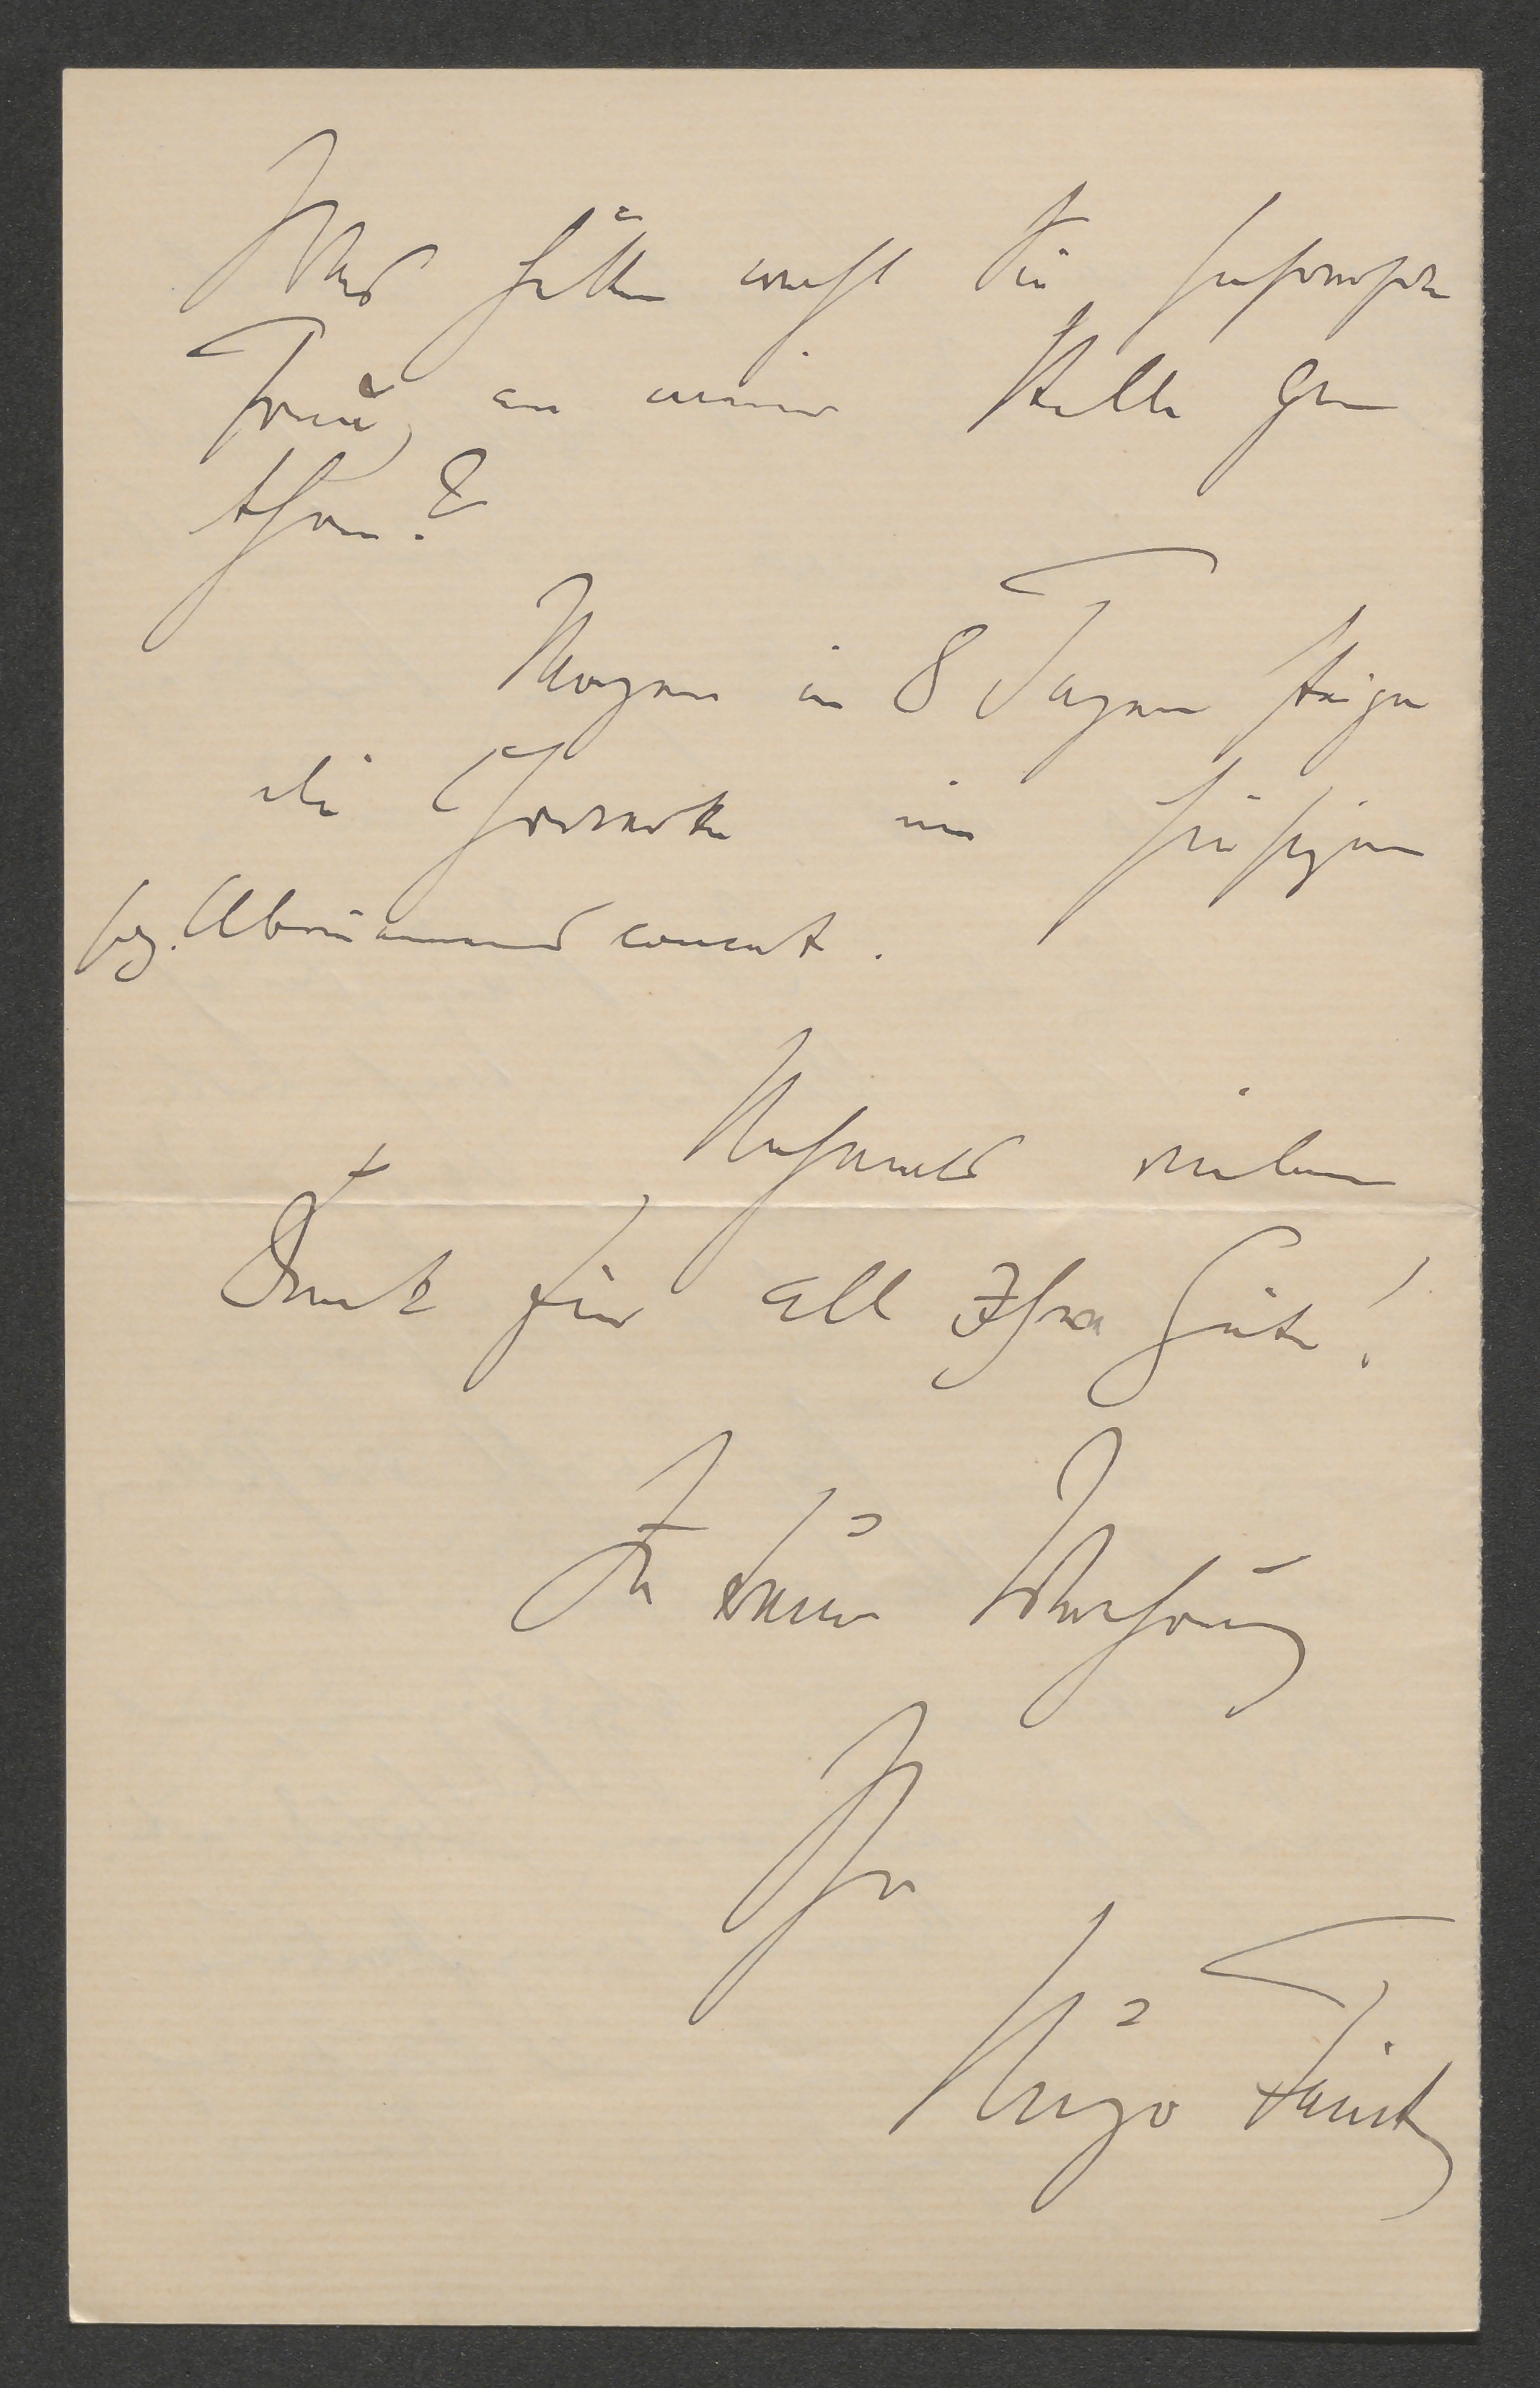 Was hätten wohl Sie, hochverehrte
Frau, an meiner Stelle ge
than?
Morgen in 8 Tagen steigen
die im hiesigen
sog. Abonnementsconcert.
Nochmals vielen
Dank für all Ihre Güte!
In treuer Verehrung
Ihr
Hugo Faisst